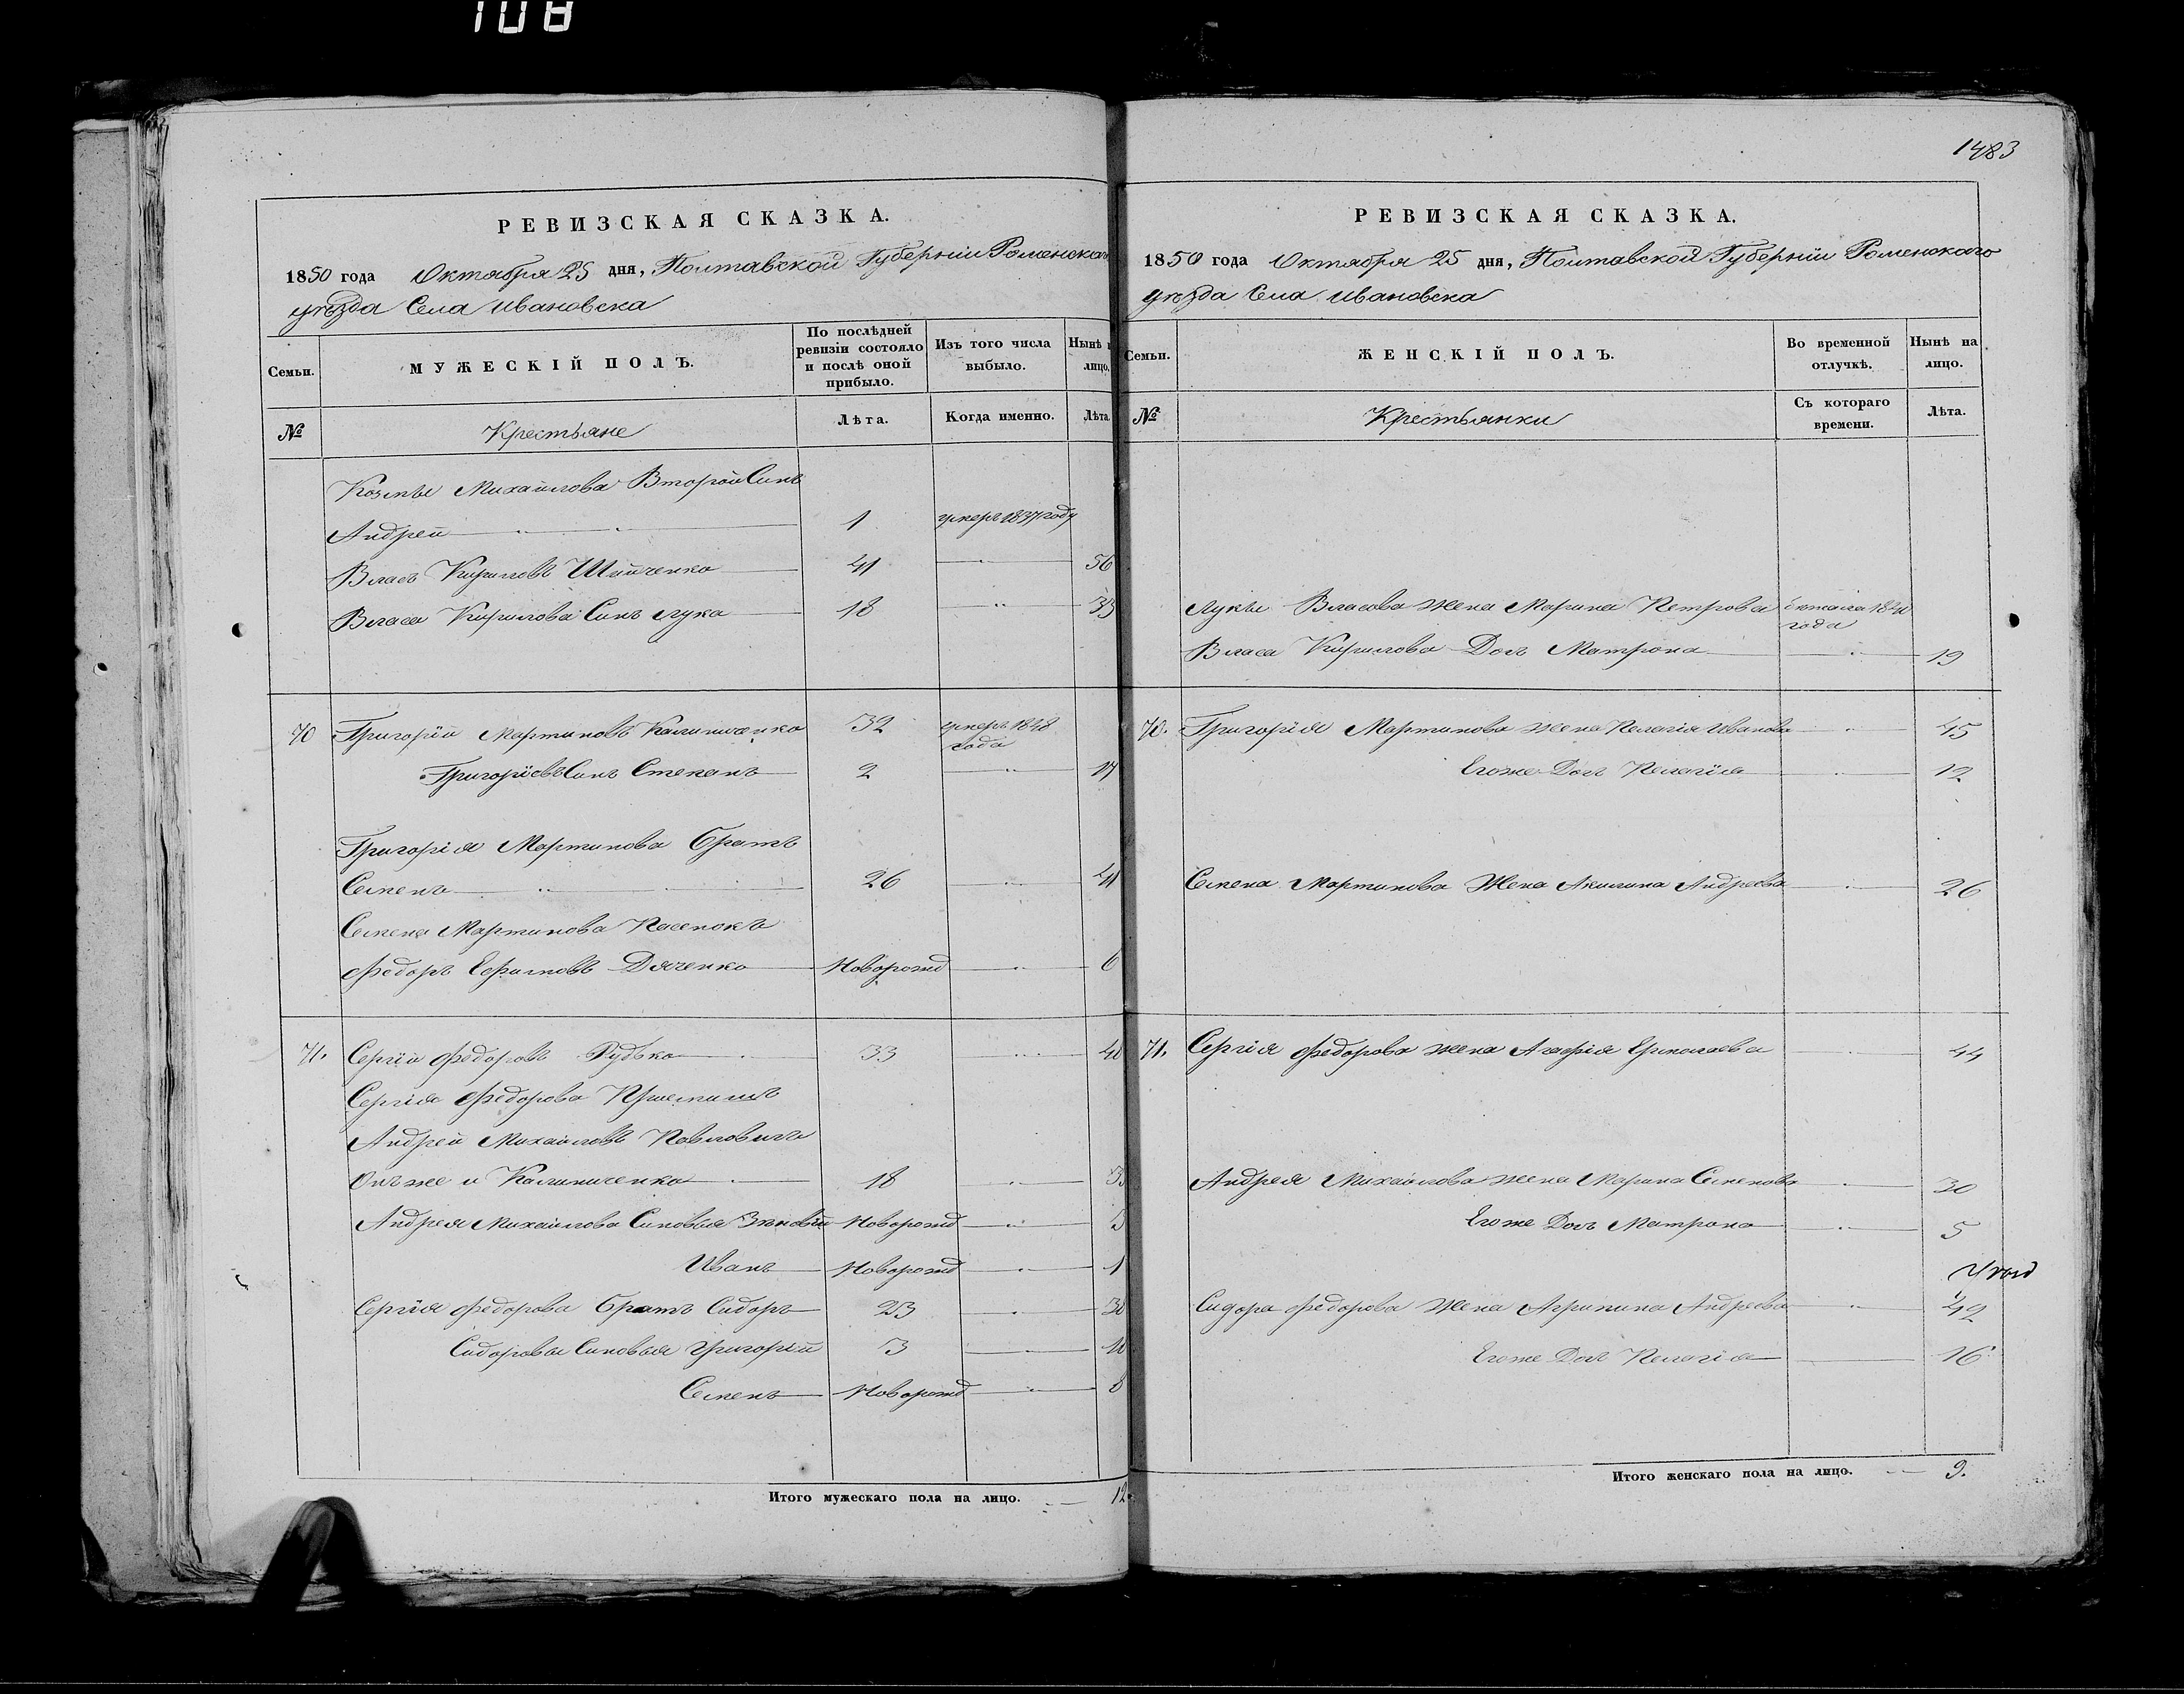 108
1483
РЕВИЗСКАЯ СКАЗКА.
1850 года Октября 25 дня, Полтавской Губерніи Роменскаго
уѣзда Села Ивановска
Семьи.
МУЖЕСКІЙ ПОЛЪ.
По послѣдней ревизіи состояло и послѣ оной прибыло.
Изъ того числа выбыло.
Нынѣ лицо.
№
Крестьяне
Лѣта.
Когда именно.
Лѣта.
Козмы Михайлова Второй Синъ
Андрей 1 умеръ 1837 году
Власъ Кириловъ 41 56
Власа Кирилова Синъ Лука 18 33
70 Григорій Мартиновъ Калиниченко 32 умеръ 1848
года
Григоріевъ Синъ Степанъ 2 17
Григорія Мартинова Братъ
Семенъ 26 41
Семена Мартинова Пасенокъ
Федоръ Ефимовъ Дяченко Новорожд 6
71. Сергій Федоровъ Рудько 33 48
Сергія Федорова
Андрей Михайловъ Павловичъ
Онъ же и Калиниченко 18 33
Андрея Михайлова Синовья Зиновій Новорожд
Иванъ Новорожд 1
Сергія Федорова Братъ Сидоръ 23 38
Сидоровы Синовья Григорій 3 18
Семенъ Новорожд 8
Итого мужескаго пола на лицо. 12
РЕВИЗСКАЯ СКАЗКА.
1850 года Октября 25 дня, Полтавской Губерніи Роменскаго
уѣзда Села Ивановска
Семьи.
ЖЕНСКІЙ ПОЛЪ.
Во временной отлучкѣ.
Нынѣ на лицо.
№
Крестьянки
Съ котораго времени.
Лѣта.
Луки Власова жена Марина Петрова
года
Власа Кирилова Дочь Матрона 19
70. Григорія Мартинова жена Пелагія Иванова 45
Егоже Дочь Пелагія 12
Семена Мартинова Жена Акилина Андреева 26
71. Сергія Федорова жена Агафія Ермолаева 44
Андрея Михайлова жена Марина Семенова 30
Егоже Дочь Матрона 5
Сидора Федорова жена Агрипина Андреева 42
Егоже Дочь Пелагія 16
Итого женскаго пола на лицо. 9.